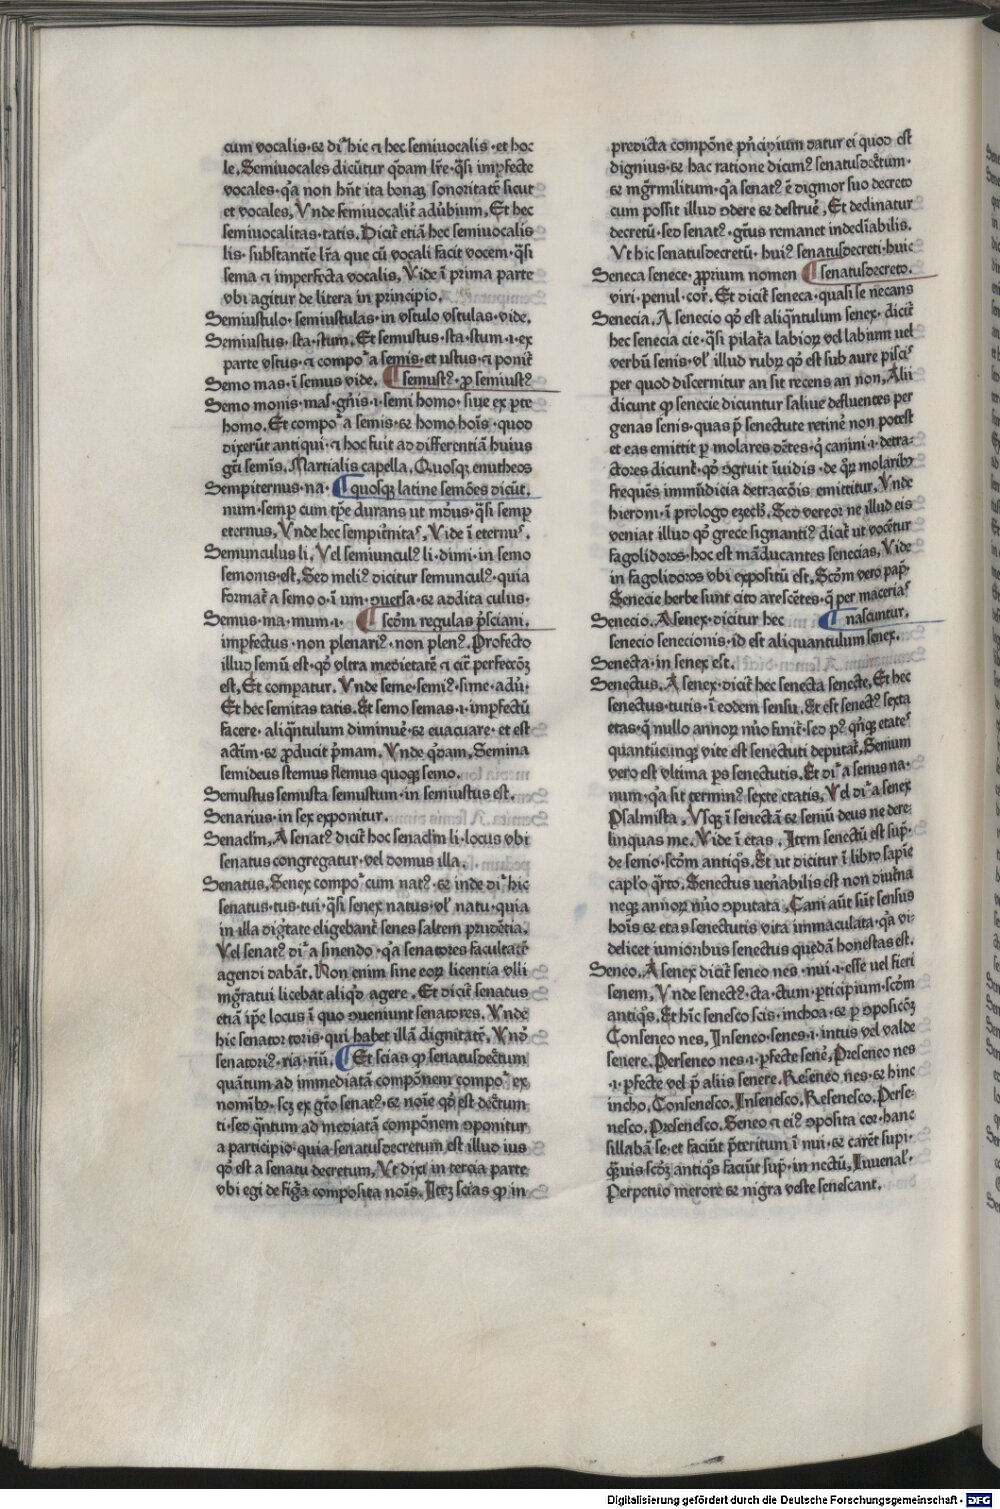 cum vocalis·et di͛ hic ⁊ hec semiuocalis·et hoc
le. Semiuocales dicūtur q̄dam lr̄e·q̄si imꝑfecte
vocales·qͣ non hn̄t ita bonaꝫ sonoritatē sicut
et vocales. Vnde semiuocalit̄ aduerbium. Et hec
semiuocalitas·tatis. Dicit̄ etiā hec semiuocalis
lis·substantie lr̄a que cū vocali facit vocem·q̄si
sema ⁊ imperfecta vocalis. Vide ī prima parte
vbi agitur de litera in principio.
Semiustulo·semiustulas·in vstulo vstulas·vide.
Semiustus·sta·stum. Et semustus·sta·stum·i·ex
parte vstus·⁊ compoͬ a semis·et ustus·⁊ ponit̄
Semo mas·ī semus vide. ¶ semustꝰ·ꝓ semiustꝰ
Semo monis·mas͛ gn̄is·i·semi homo·siue ex ꝑte
homo. Et compoͬ a semis·et homo hoīs·quod
dixerūt antiqui·⁊ hoc fuit ad differentiā huius
gt̄i semīs. Martialis capella. Quosqꝫ emitheos
Sempiternus·na· ¶ quosqꝫ latine semōes dicūt.
num·semꝑ cum tp̄e durans ut mūdus·q̄si semꝑ
eternus. Vnde hec sempit̄nitas. Vide ī eternus.
Semunculus li. Vel semiunculꝰ li·dimi·in semo
semonis·est. Sed meliꝰ dicitur semunculꝰ·quia
format̄ a semo·o·ī um·ꝯuersa·et addita culus·
Semus·ma·mum·i· ¶ scdm regulas p̄sciani.
imꝑfectus·non plenariꝰ·non plenꝰ. Profecto
illud semū est·qd͛ vltra medietatē ⁊ cit̄ ꝑfectōeꝫ
est. Et comꝑatur. Vnde seme·semiꝰ·sime·adū·
Et hec semitas tatis. Et semo semas·i·imꝑfectū
facere·aliqn̄tulum diminue͛·et euacuare·et est
actiū·et ꝓducit p̄mam. Vnde q̄dam. Semina
semideus stemus flemus quoqꝫ semo.
Semustus semusta semustum·in semiustus est.
Senarius·in sex exponitur.
Senaclm̄. A senatꝰ dicit̄ hoc senaclm̄ li·locus vbi
senatus congregatur·vel domus illa.
Senatus. Senex compoͬ cum natꝰ·et inde diͬ hic
senatus·tus·tui·q̄si senex natus·vl͛ natu·quia
in illa dig̅tate eligebant̄ senes saltem prudētia.
Vel senatꝰ diͬ a sinendo·qͣ senatores facultatē
agendi dabāt. Non enim sine eoꝝ licentia vlli
mg̅ratui licebat aliqͥd agere. Et dicit̄ senatus
etiā ip̄e locus ī quo ꝯueniunt senatores. Vnde
hic senator toris·qui habet illā dignitatē. Vnͩ
senatoriꝰ·ria·riū. ¶ Et scias ꝙ senatusdecretum
quātum ad immediatā compōnem compoͬ ex
nomībꝰ·scꝫ ex gt̄o senatꝰ·et noīe qd͛ est decretum
ti·sed q̄ntum ad mediatā compōnem ꝯponitur
a participio·quia senatusdecretum est illud ius
qd͛ est a senatu decretum. Vt dixi in tercia parte
vbi egi de figͣa composita noīs. Iteꝫ scias ꝙ in
predicta compōne pn̄cipium datur ei quod est
dignius·et hac ratione dicimꝰ senatusdecretum·
et mgr̄militum·qͣ senatꝰ ē dignior suo decreto
cum possit illud ꝯdere et destrue͛. Et declinatur
decretū·sed senatꝰ·gt̄us remanet indeclīabilis.
Vt hic senatusdecretū·huiꝰ senatusdecreti·huic
Seneca senece·ꝓprium nomen ¶ senatusdecreto.
viri·penul·cor͛. Et dicit̄ seneca·quasi se necans
Senecia. A senecio qd͛ est aliqn̄tulum senex·dicit̄
hec senecia cie·q̄si pilata labioꝝ vel labium uel
verbū senis·vl͛ illud rubꝝ qd͛ est sub aure piscis
per quod discernitur an sit recens an non. Alii
dicunt ꝙ senecie dicuntur saliue defluentes per
genas senis·quas p̄ senectute retine͛ non potest
et eas emittit ꝑ molares dētes·qͥ canini·i·detra-
ctores dicunt̄·qd͛ ꝯgruit īuidis·de qͦꝝ molaribꝰ
frequēs immūdicia detractōis emittitur. Vnde
hieroni·ī prologo ezech͛. Sed vereor ne illud eis
veniat illud qd͛ grece signantiꝰ dicit̄ ut vocētur
fagolidoros·hoc est māducantes senecias. Vide
in fagolidoros vbi expositū est. Scdm vero pap͛·
Senecie herbe sunt cito arescētes·q̄ per macerias
Senecio. A senex·dicitur hec ¶ nascuntur.
senecio senecionis·id est aliquantulum senex.
Senecta·in senex est.
Senectus. A senex·dicit̄ hec senecta senecte. Et hec
senectus·tutis·ī eodem sensu. Et est senectꝰ sexta
etas·q̄ nullo annoꝝ nūo finit̄·sed pꝰ qͥnqꝫ etates
quantūcunqꝫ vite est senectuti deputat̄. Senium
vero est vltima ꝑs senectutis. Et diͬ a senus·na·
num·qͣ sit terminꝰ sexte etatis. Vel diͬ a senex
Psalmista. Vsqꝫ ī senectā et seniū deus ne dere-
linquas me. Vide ī etas. Item senectū est sup͛·
de senio·scdm antiqͦs. Et ut dicitur ī libro sapīe
caplo q̄rto. Senectus uen̄abilis est non diut̄na
neqꝫ annoꝝ nūo ꝯputata. Cani aūt sūt sensus
hoīs et etas senectutis vita immaculata·qͣ vi-
delicet iunioribus senectus quedā honestas est.
Seneo. A senex dicit̄ seneo nes·nui·i·esse uel fieri
senem. Vnde senectꝰ·cta·ctum·ꝑticipium·scdm
antiqͦs. Et hīc senesco scis·inchoa·et ꝑ ꝯposicōꝫ
Conseneo nes. Inseneo·senes·i·intus vel valde
senere. Perseneo nes·i·ꝑfecte sene͛. Preseneo nes
·i·ꝑfecte vel p̄ aliis senere. Reseneo nes·et hinc
incho. Consenesco. Insenesco. Resenesco. Perse-
nesco. Presenesco. Seneo ⁊ eiꝰ ꝯposita cor·hanc
sillabā se·et faciūt p̄teritum ī nui·et carēt supi·
qͣuis scdm antiqͦs faciūt sup͛·in nectū. Iuuenal͛·
Perpetuo merore et nigra veste senescant.
Digitalisierung gefördert durch die Deutsche Forschungsgemeinschaft - DFG